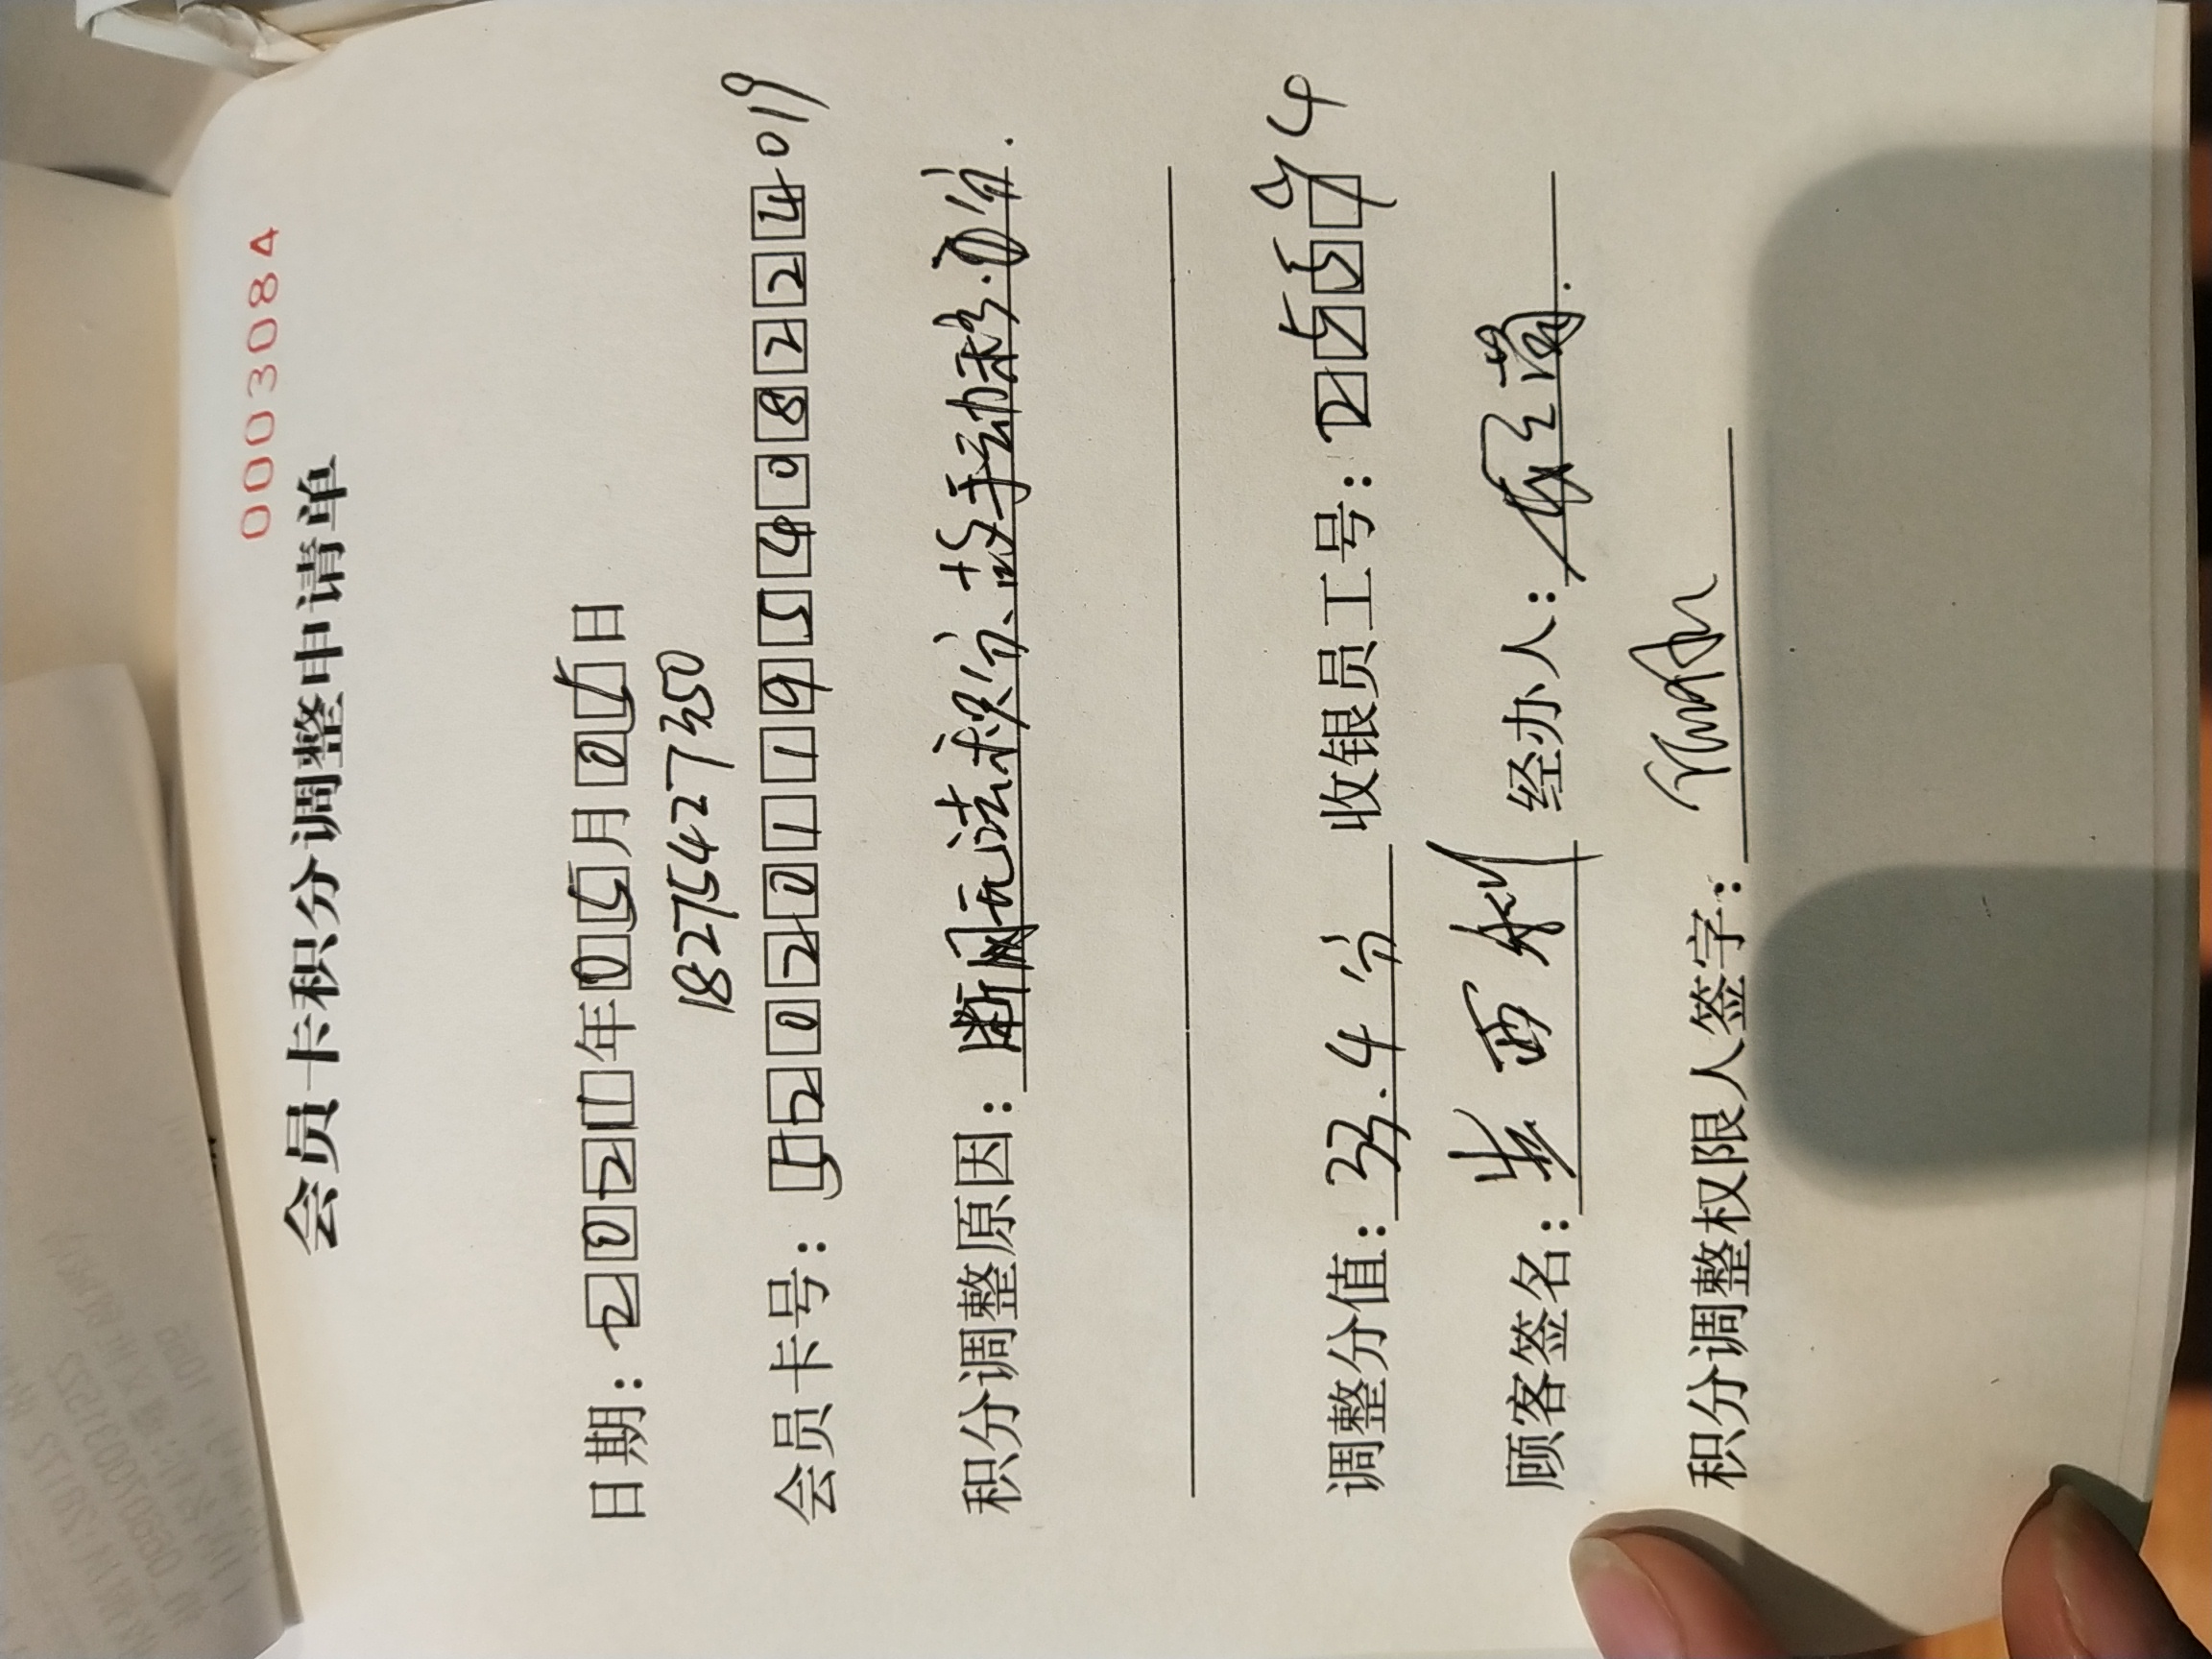 0003084
会员卡积分调整申请单
日期：2021年05月05日
18275427350
会员卡号：520201195408224019
积分调整原因：断网无法积分.故手动移动分.
调整分值：33.4分 收银员工号：25594
顾客签名： 经办人：
积分调整权限人签字：